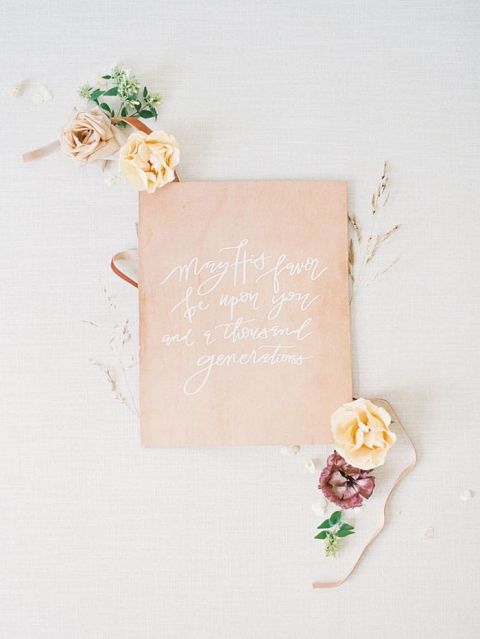 May His favor
be upon you
and a thousand
generations